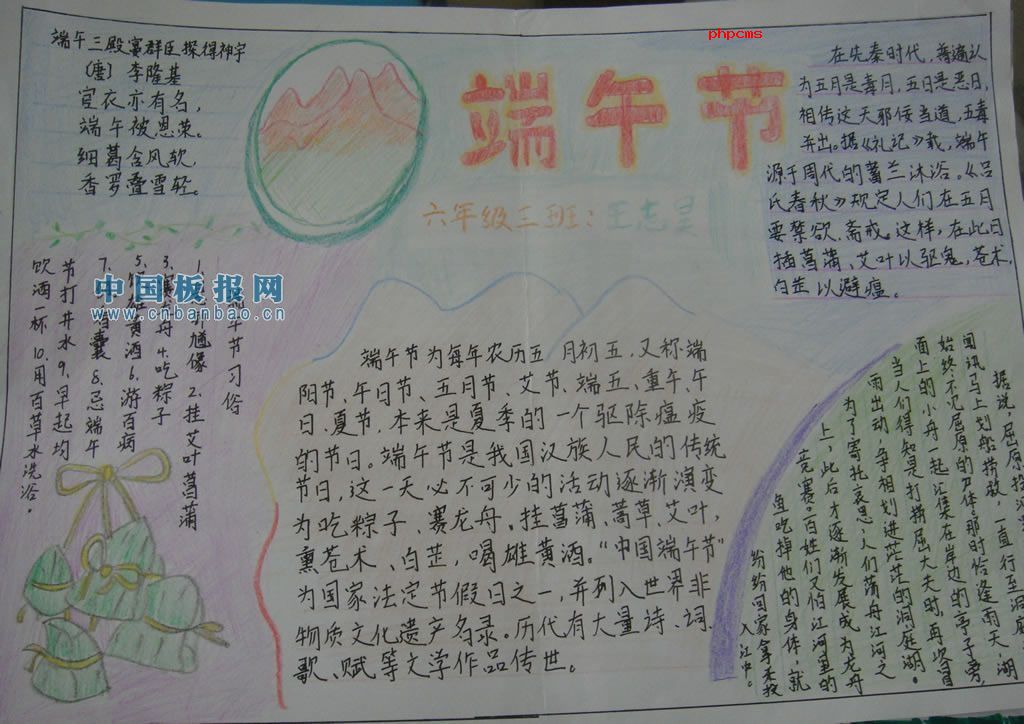 phpcms
端午三殿宴群臣探得神字
(唐) 李隆基
宦衣亦有名，
端午被恩荣。
细葛含风软，
香罗叠雪轻。
端午节
六年级三班：王志
在先秦时代，普遍认
为五月是毒月，五日是恶日，
相传这天邪佞当道，五毒
并出。据《礼记》载，端午
源于周代的蓄兰沐浴。《吕
氏春秋》规定人们在五月
要禁欲、斋戒。这样，在此日
插菖蒲、艾叶以驱鬼，苍术，
白芷以避瘟。
中国板报网
www.cnbanbao.cn
午节习俗
馗像 2、挂艾叶菖蒲
3、赛 舟 4、吃粽子
5、 雄黄酒 6、游百病
7、 香囊 8、忌端午
节打井水 9、早起均
饮酒一杯 10、用百草水洗浴。
端午节为每年农历五月初五，又称端
阳节、午日节、五月节、艾节、端五、重午、午
日、夏节，本来是夏季的一个驱除瘟疫
的节日。端午节是我国汉族人民的传统
节日，这一天必不可少的活动逐渐演变
为吃粽子、赛龙舟、挂菖蒲、蒿草、艾叶，
熏苍术、白芷，喝雄黄酒。“中国端午节”
为国家法定节假日之一，并列入世界非
物质文化遗产名录。历代有大量诗、词、
歌、赋等文学作品传世。
据说，屈原投
闻讯马上划船捞救，一直行至洞庭
始终不见屈原的尸体。那时恰逢雨天，湖
面上的小舟一起汇集在岸边的亭子旁，
当人们得知是打捞屈大夫时，再次冒
雨出动，争相划进茫茫的洞庭湖。
为了寄托哀思，人们荡舟江河之
上，此后才逐渐发展成为龙舟
竞赛。百姓们又怕江河里的
鱼吃掉他的身体，就
纷纷回家拿来
入江中。